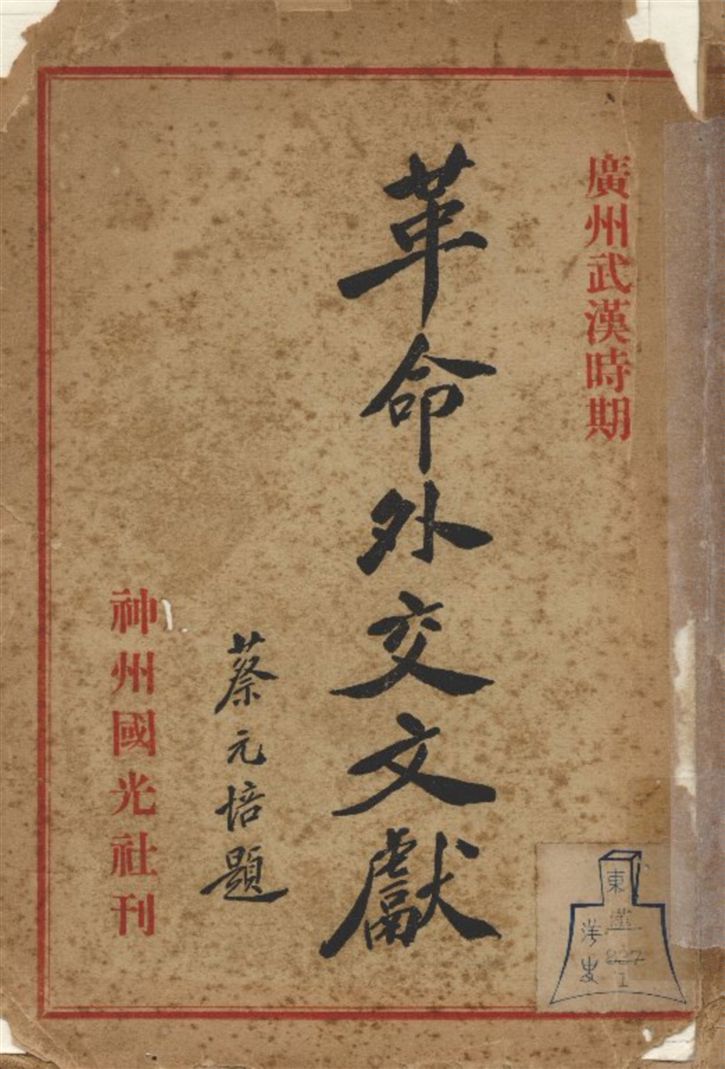 廣州武漢時期
革命外交文獻
蔡元培題
神州國光社刊
東
洋史
227
1